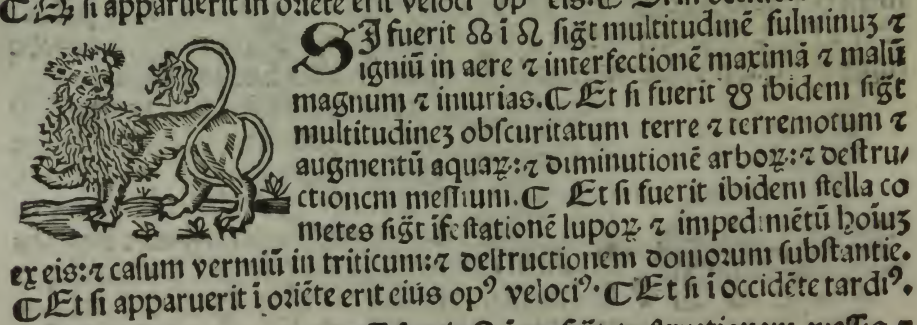 si apparuerit in oriẽte erit veloci⁹ op⁹ eiˢ.
SI fuerit ☊ ĩ ♌ siḡt multitudinẽ fulminuȝ ⁊
igniũ in aere ⁊ interfectionẽ maximã ⁊ malũ
magnum ⁊ iniurias. ⸿ Et si fuerit ☋ ibidem siḡt
multitudineȝ obscuritatum terre ⁊ terremotum ⁊
augmentũ aquaꝝ: ⁊ diminutionẽ arboꝝ: ⁊ destru/
ctionem messium. ⸿ Et si fuerit ibidem stella co
metes siḡt ĩfestationẽ lupoꝝ ⁊ impedimẽtũ hoĩuȝ
ex eis: ⁊ casum vermiũ in triticum: ⁊ destructionem domorum substantie.
⸿ Et si apparuerit ĩ oriẽte erit eius op⁹ veloci⁹. ⸿ Et si ĩ occidẽte tardi⁹.